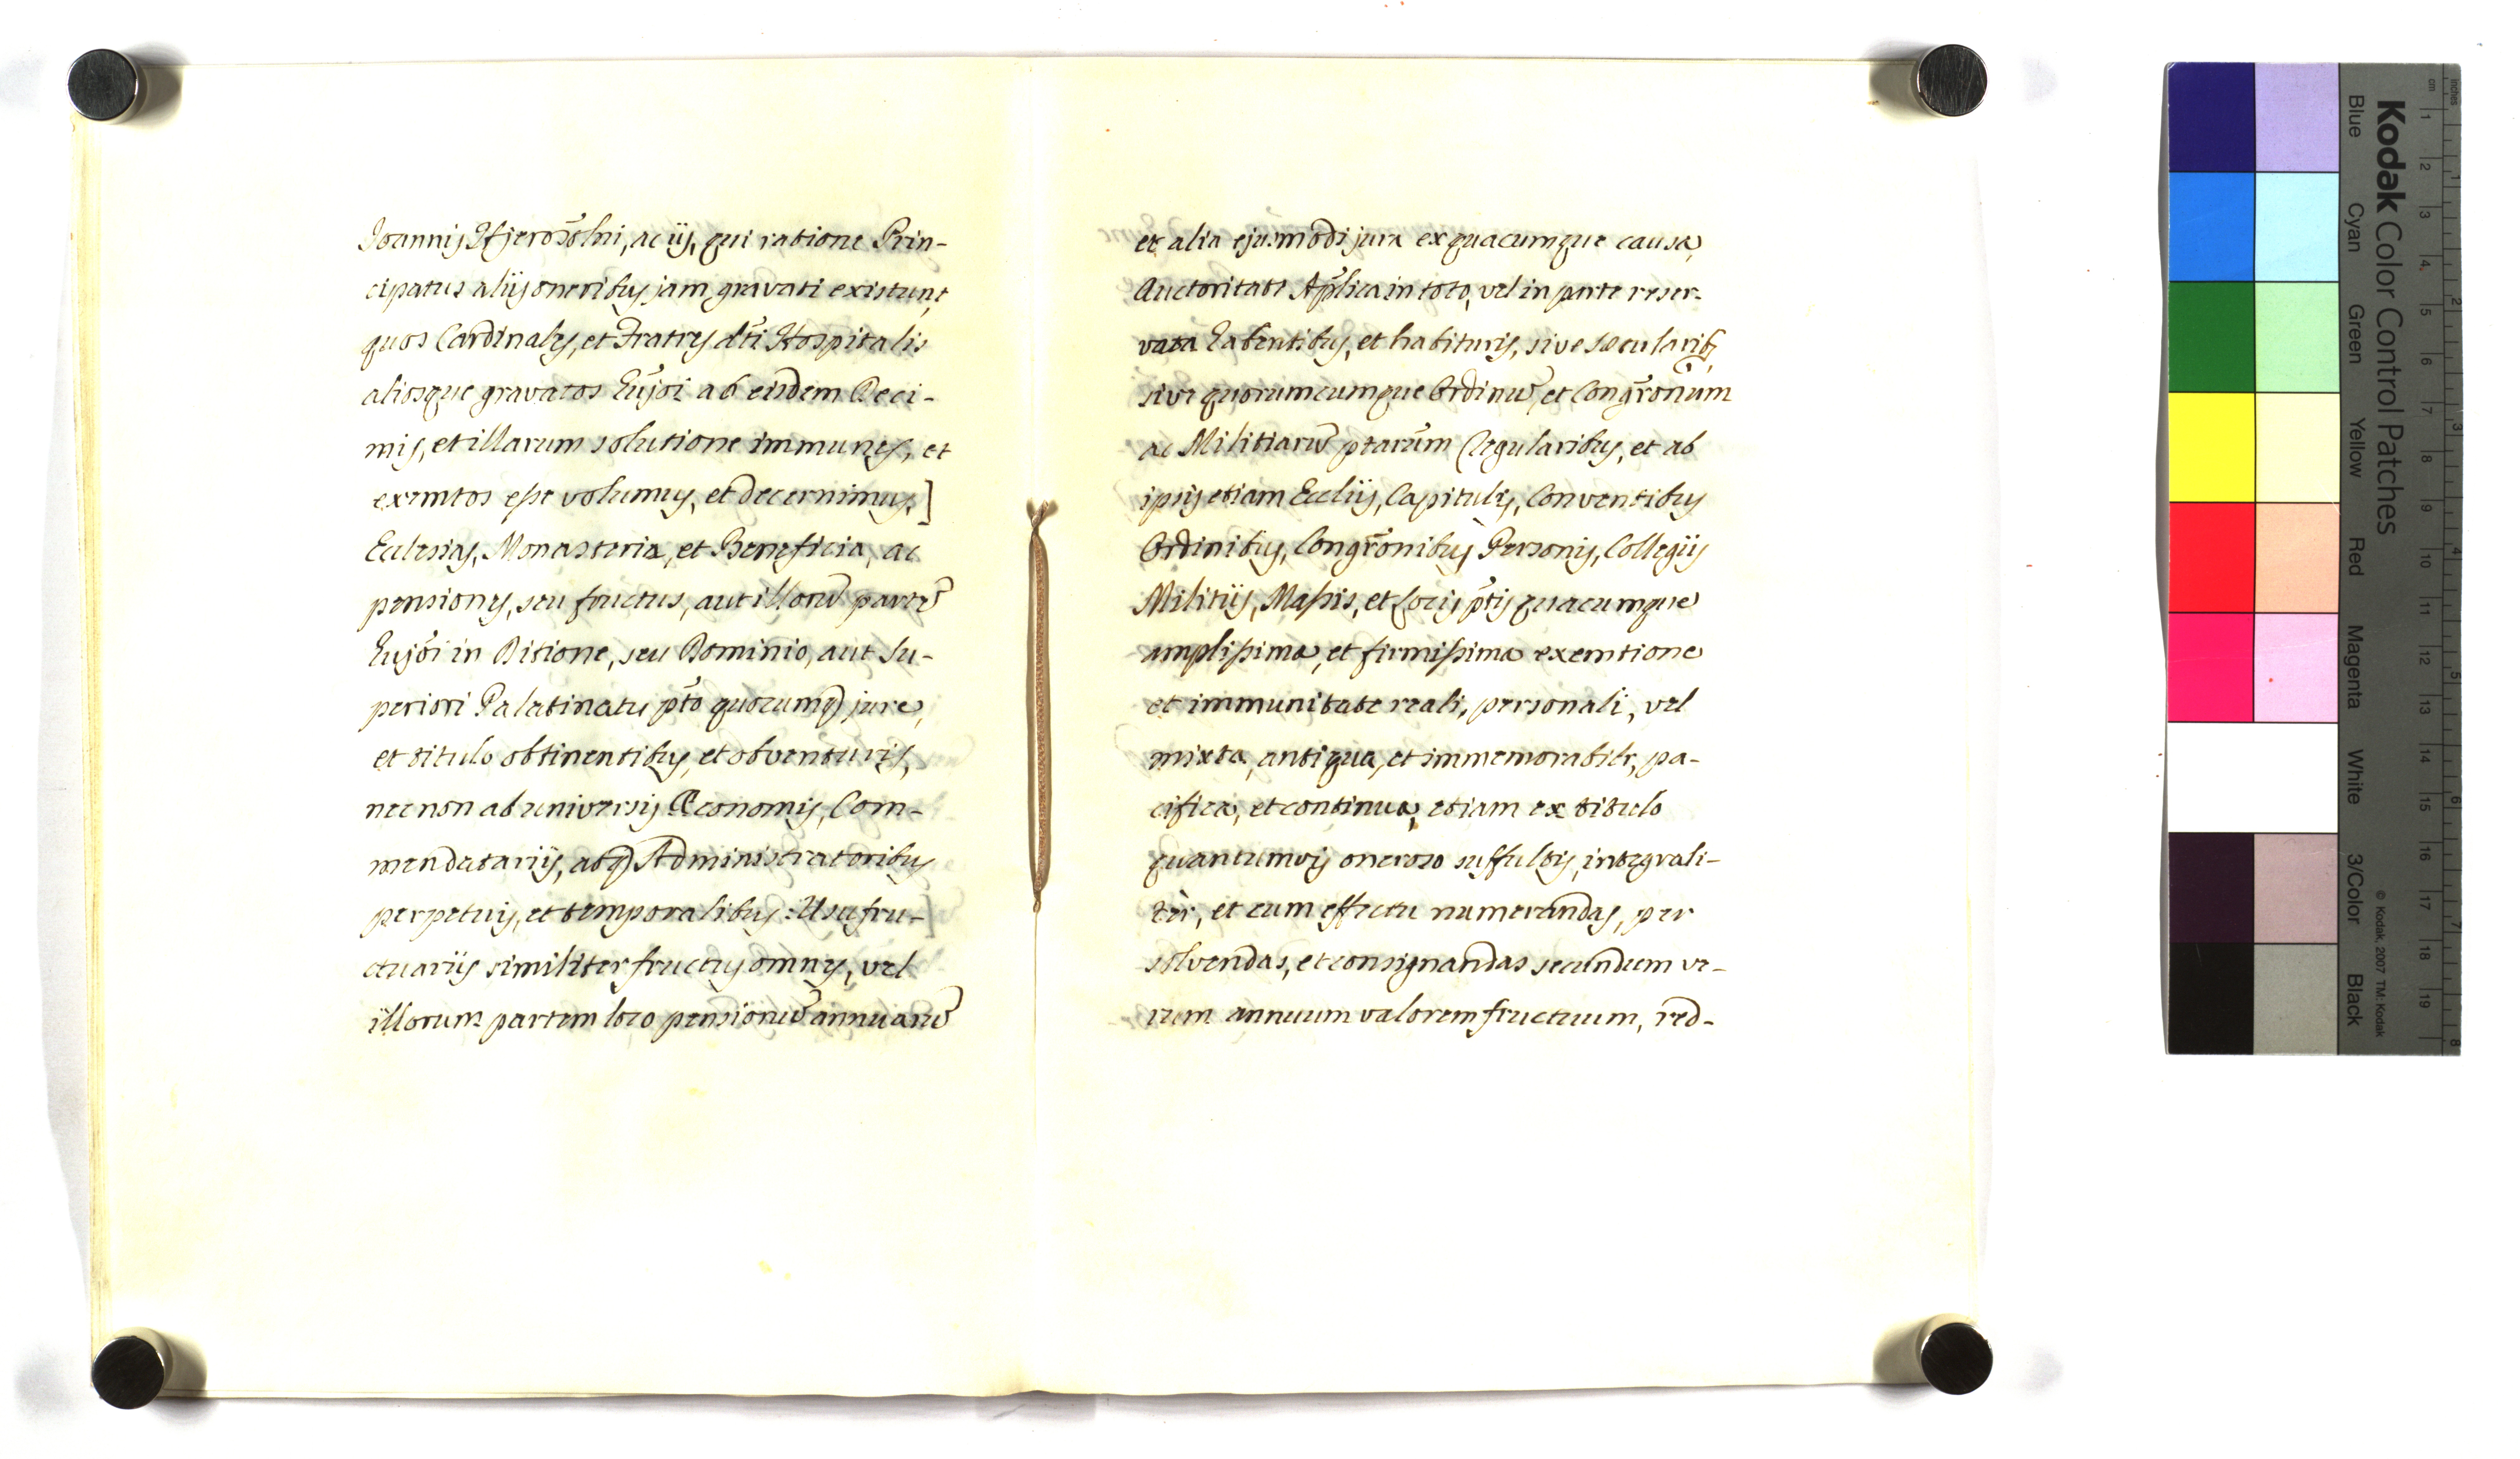 Joannis Hjerosolni, ac iis, qui ratione Prin-
cipatus aliis oneribus jam gravati existunt,
quos Cardinales, et Fratres dti Hospitalis
aliosque gravatos hujoi ab eisdem Deci-
mis, et illarum solutione immunes, et
exemtos esse volumus, et decernimus,]
Ecclesias, Monasteria, et Beneficia, ac
pensiones, seu fructus, aut illorũ partẽ
hujoi in Ditione, seu Dominio, aut Su-
periori Palatinatu pto quocumq jure,
et titulo obtinentibus, et obventuris,
nec non ab universis Œconomis, Com-
mendatariis, abq Administratoribus
perpetuis, et temporalibus: Usufru-
ctuariis similiter fructus omnes, vel
illorum partem loco pensionũ annuarũ
et alia ejusmodi jura ex quacumque causa,
Auctoritate Aplica in toto, vel in parte reser-
vata habentibus, et habituris, sive sæcularib,
sive quorumcumque Ordinũ, et Congronum
ac Militiarũ ptarum Regularibus, et ab
ipsis etiam Eccliis, Capitulis, Conventibus
Ordinibus, Congronibus Personis, Collegiis
Militiis, Massis, et Locis ptis quacumque
amplissima, et firmissima exemtione
et immunitate reali, personali, vel
mixta, antiqua, et immemorabili, pa-
cifica, et continua, etiam ex titulo
quantumvis oneroso suffultis, integrali-
ter, et cum effectu numerandas, per
solvendas, et consignandas secundum ve-
rum annuum valorem fructuum, red-
Kodak Color Control Patches
Blue Cyan Green Yellow Red Magenta White 3/Color Black
© Kodak, 2007 TM: Kodak
cm 1 2 3 4 5 6 7 8 9 10 11 12 13 14 15 16 17 18 19
inches 1 2 3 4 5 6 7 8